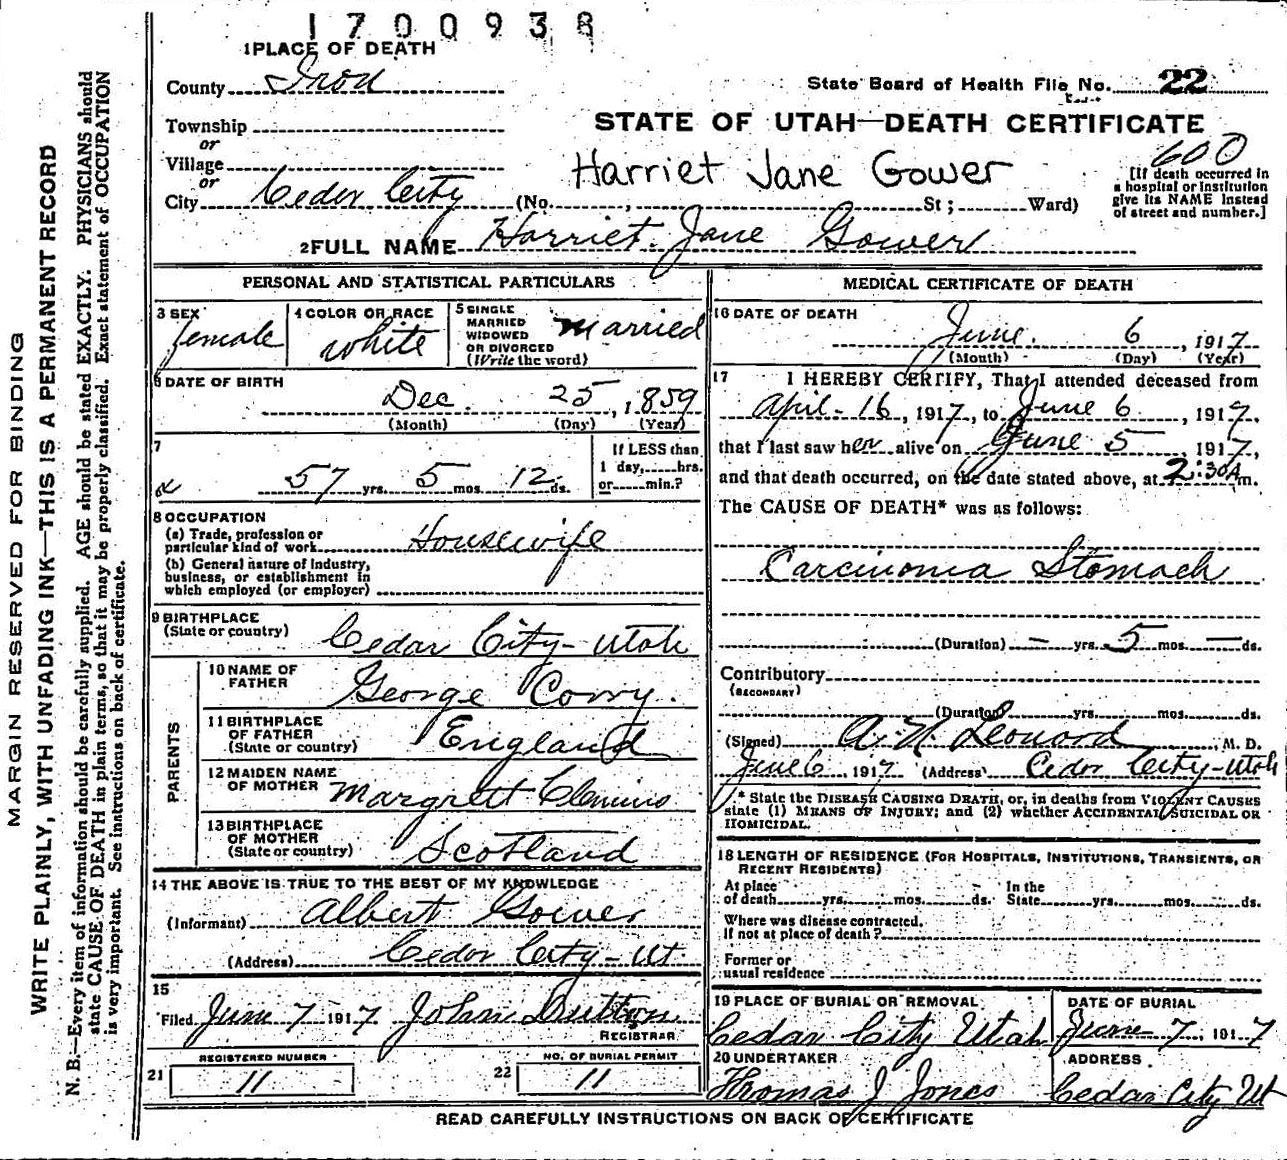 1700938
1 PLACE OF DEATH
County Iron
State Board of Health File No. 22
Township
or
Village
or
City Cedar City (No. , St; Ward)
STATE OF UTAH—DEATH CERTIFICATE
600
Harriet Jane Gower
[If death occurred in
a hospital or institution
give its NAME instead
of street and number.]
2 FULL NAME Harriet Jane Gower
PERSONAL AND STATISTICAL PARTICULARS
3 SEX
female
4 COLOR OR RACE
white
5 SINGLE
MARRIED
WIDOWED
OR DIVORCED
(Write the word)
married
6 DATE OF BIRTH
Dec. 25, 1859
(Month) (Day) (Year)
7
57 yrs. 5 mos. 12 ds.
If LESS than
1 day, hrs.
or min.?
8 OCCUPATION
(a) Trade, profession or
particular kind of work Housewife
(b) General nature of industry,
business, or establishment in
which employed (or employer)
9 BIRTHPLACE
(State or country) Cedar City-Utah
PARENTS
10 NAME OF
FATHER George Corry.
11 BIRTHPLACE
OF FATHER
(State or country) England
12 MAIDEN NAME
OF MOTHER Margrett
13 BIRTHPLACE
OF MOTHER
(State or country) Scotland
14 THE ABOVE IS TRUE TO THE BEST OF MY KNOWLEDGE
(Informant) Albert Gower
(Address) Cedar City-Ut.
15
Filed June 7 1917 John Dutton
REGISTRAR
REGISTERED NUMBER
21 11
NO. OF BURIAL PERMIT
22 11
MEDICAL CERTIFICATE OF DEATH
16 DATE OF DEATH
June. 6, 1917
(Month) (Day) (Year)
17 I HEREBY CERTIFY, That I attended deceased from
April-16, 1917, to June 6, 1917.
that I last saw her alive on June 5, 1917,
and that death occurred, on the date stated above, at 2:30A m.
The CAUSE OF DEATH* was as follows:
Carcinonia Stomach
(Duration) — yrs. 5 mos. — ds.
Contributory
(SECONDARY)
(Duration) yrs. mos. ds.
(Signed) A. N. Leonard, M. D.
June 6, 1917 (Address) Cedar City-Utah
* State the DISEASE CAUSING DEATH, or, in deaths from VIOLENT CAUSES
state (1) MEANS OF INJURY; and (2) whether ACCIDENTAL, SUICIDAL OR
HOMICIDAL.
18 LENGTH OF RESIDENCE (FOR HOSPITALS, INSTITUTIONS, TRANSIENTS, OR
RECENT RESIDENTS)
At place
of death yrs. mos. ds.
In the
State yrs. mos. ds.
Where was disease contracted.
If not at place of death?
Former or
usual residence
19 PLACE OF BURIAL OR REMOVAL
Cedar City Utah
DATE OF BURIAL
June 7, 1917
20 UNDERTAKER
Thomas J Jones
ADDRESS
Cedar City Ut
READ CAREFULLY INSTRUCTIONS ON BACK OF CERTIFICATE
MARGIN RESERVED FOR BINDING
WRITE PLAINLY, WITH UNFADING INK—THIS IS A PERMANENT RECORD
N. B.—Every item of information should be carefully supplied. AGE should be stated EXACTLY. PHYSICIANS should
state CAUSE OF DEATH in plain terms, so that it may be properly classified. Exact statement of OCCUPATION
is very important. See instructions on back of certificate.